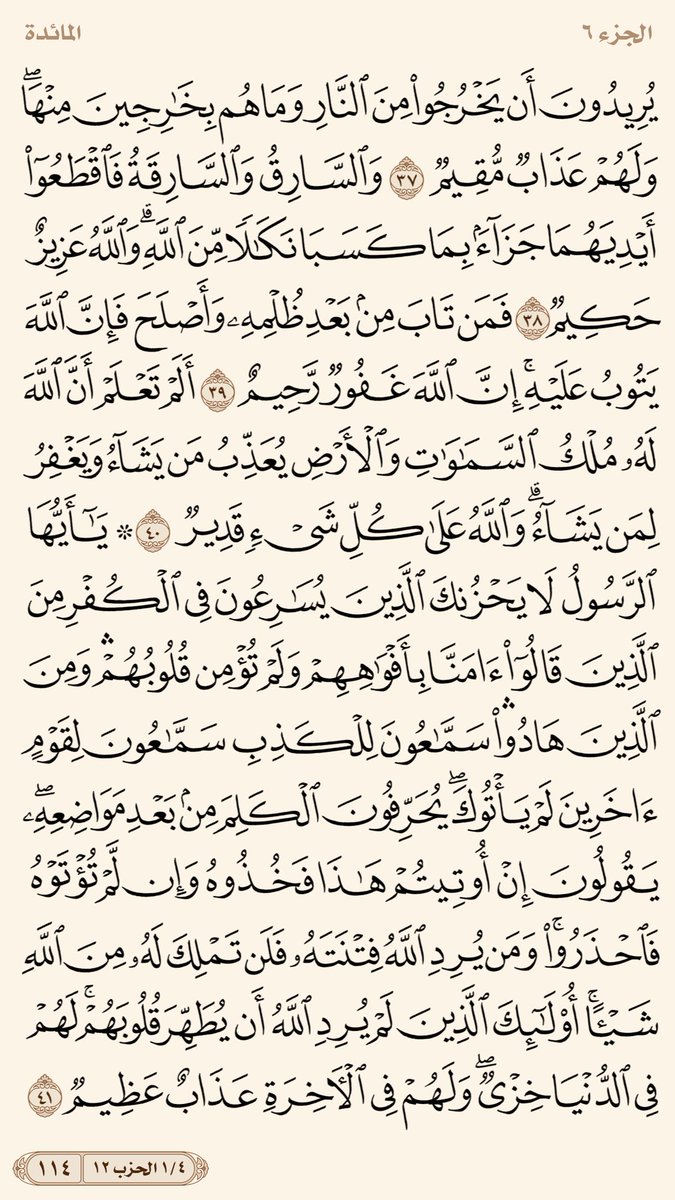 الجزء ٦
المائدة
يُرِيدُونَ أَن يَخْرُجُوا۟ مِنَ ٱلنَّارِ وَمَا هُم بِخَٰرِجِينَ مِنْهَا ۖ
وَلَهُمْ عَذَابٌ مُّقِيمٌ ٣٧ وَٱلسَّارِقُ وَٱلسَّارِقَةُ فَٱقْطَعُوٓا۟
أَيْدِيَهُمَا جَزَآءًۢ بِمَا كَسَبَا نَكَٰلًا مِّنَ ٱللَّهِ ۗ وَٱللَّهُ عَزِيزٌ
حَكِيمٌ ٣٨ فَمَن تَابَ مِنۢ بَعْدِ ظُلْمِهِۦ وَأَصْلَحَ فَإِنَّ ٱللَّهَ
يَتُوبُ عَلَيْهِ ۚ إِنَّ ٱللَّهَ غَفُورٌ رَّحِيمٌ ٣٩ أَلَمْ تَعْلَمْ أَنَّ ٱللَّهَ
لَهُۥ مُلْكُ ٱلسَّمَٰوَٰتِ وَٱلْأَرْضِ يُعَذِّبُ مَن يَشَآءُ وَيَغْفِرُ
لِمَن يَشَآءُ ۗ وَٱللَّهُ عَلَىٰ كُلِّ شَىْءٍ قَدِيرٌ ٤٠ * يَٰٓأَيُّهَا
ٱلرَّسُولُ لَا يَحْزُنكَ ٱلَّذِينَ يُسَٰرِعُونَ فِى ٱلْكُفْرِ مِنَ
ٱلَّذِينَ قَالُوٓا۟ ءَامَنَّا بِأَفْوَٰهِهِمْ وَلَمْ تُؤْمِن قُلُوبُهُمْ ۛ وَمِنَ
ٱلَّذِينَ هَادُوا۟ ۛ سَمَّٰعُونَ لِلْكَذِبِ سَمَّٰعُونَ لِقَوْمٍ
ءَاخَرِينَ لَمْ يَأْتُوكَ ۖ يُحَرِّفُونَ ٱلْكَلِمَ مِنۢ بَعْدِ مَوَاضِعِهِۦ ۖ
يَقُولُونَ إِنْ أُوتِيتُمْ هَٰذَا فَخُذُوهُ وَإِن لَّمْ تُؤْتَوْهُ
فَٱحْذَرُوا۟ ۚ وَمَن يُرِدِ ٱللَّهُ فِتْنَتَهُۥ فَلَن تَمْلِكَ لَهُۥ مِنَ ٱللَّهِ
شَيْـًٔا ۚ أُو۟لَٰٓئِكَ ٱلَّذِينَ لَمْ يُرِدِ ٱللَّهُ أَن يُطَهِّرَ قُلُوبَهُمْ ۚ لَهُمْ
فِى ٱلدُّنْيَا خِزْىٌ ۖ وَلَهُمْ فِى ٱلْءَاخِرَةِ عَذَابٌ عَظِيمٌ ٤١
١/٤ الحزب ١٢
١١٤